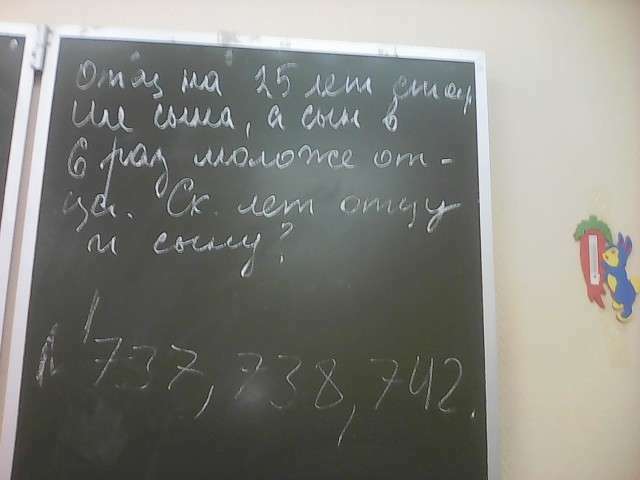 Отец на 25 лет стар
ше сына, а сын в
6 раз моложе от-
ца. Ск. лет отцу
и сыну?
№ 737, 738, 742.